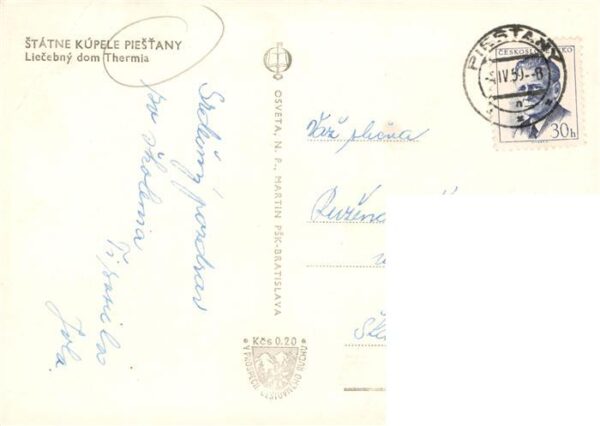 ŠTÁTNE KÚPELE PIEŠŤANY
Liečebný dom Thermia
Srdečný pozdrav
zo školenia
Jola
OSVETA, N. P., MARTIN PŠK-BRATISLAVA
Kčs 0.20
V PROSPECH CESTOVNÉHO RUCHU
PIEŠŤANY
IV.59.-8
ČESKOSLOVENSKO
30h
Váž. slečna
Ružena